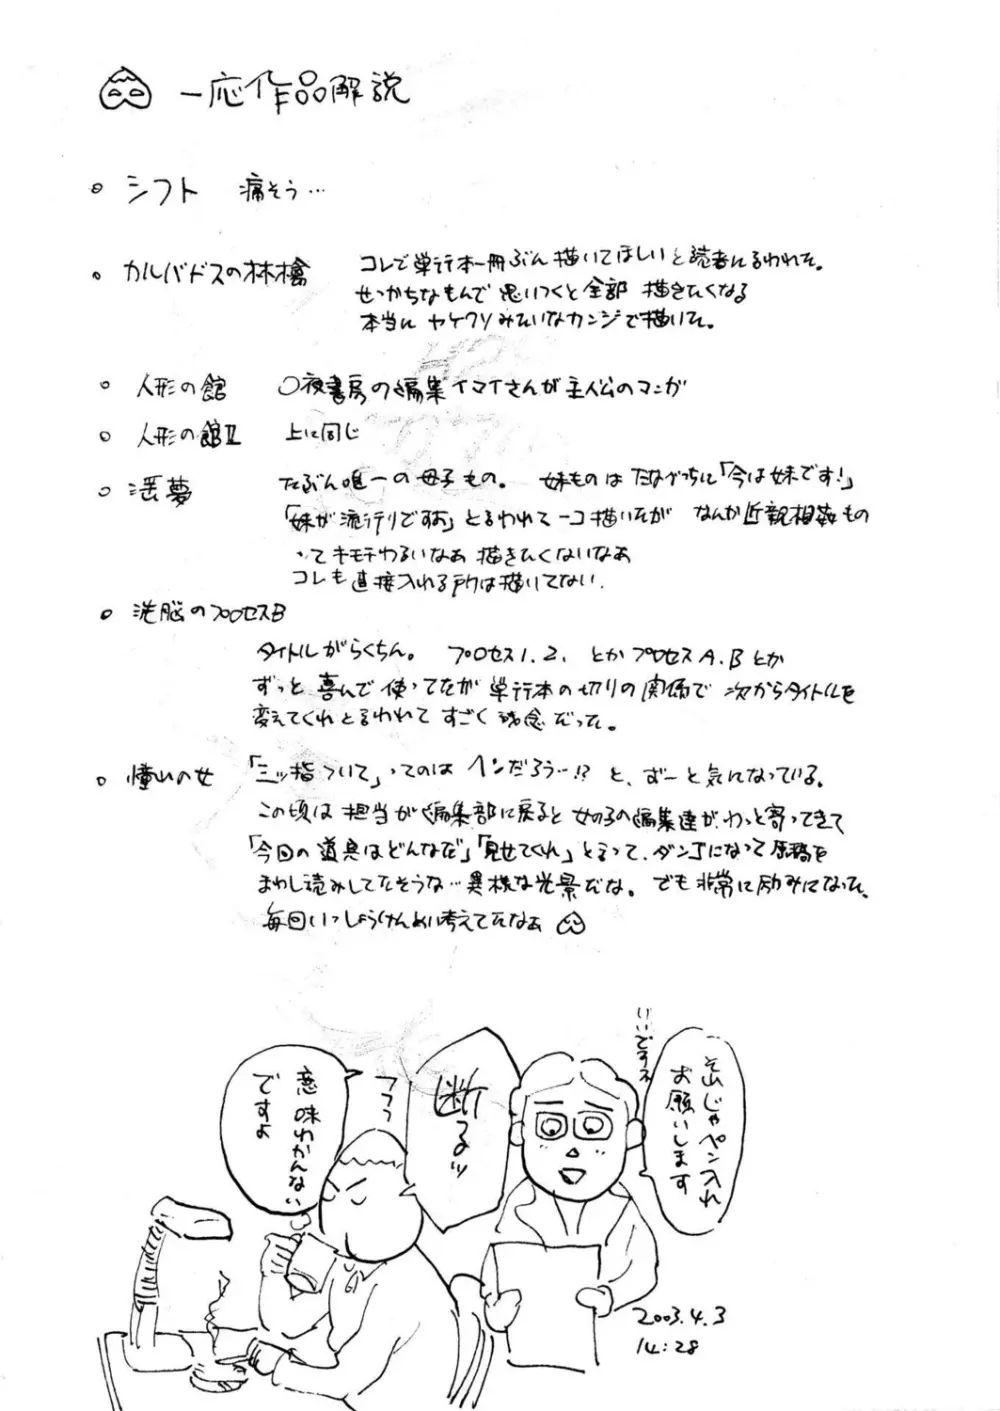 一応作品解説
。シフト 痛そう…
。カルバドスの林檎 コレで単行本一冊ぶん描いてほしいと読者に言われた。
せっかちなもんで思いつくと全部描きたくなる
本当にヤケクソみたいなカンジで描いた。
。人形の館 〇夜書房の編集イマイさんが主人公のマンガ
。人形の館Ⅱ 上に同じ
。淫夢 たぶん唯一の母子もの。 妹ものは たなべっちに「今は妹です!」
「妹が流行りですよ」と言われて一コ描いたが なんか近親相姦もの
ってキモチわるいなぁ 描きたくないなぁ
コレも直接入れる所は描いてない.
。洗脳のプロセスB
タイトルがらくちん。 プロセス1.2. とかプロセスA.Bとか
ずっと喜んで使ってたが単行本の切りの関係で次からタイトルを
変えてくれと言われてすごく残念だった。
。憧れの女 「三ッ指ついて」ってのはヘンだろう…!? と、ずーと気になっている。
この頃は担当が編集部に戻ると女の子の編集達が、わっと寄ってきて
「今回の道具はどんなだ」「見せてくれ」と言って、ダンゴになって原稿を
まわし読みしてたそうな…異様な光景だな。でも非常に励みになった。
毎回いっしょうけんめい考えてたなぁ
いいですネ
そんじゃペン入れ
お願いします
断るッ
フフフ
意味わかんない
ですよ
2003.4.3
14:28